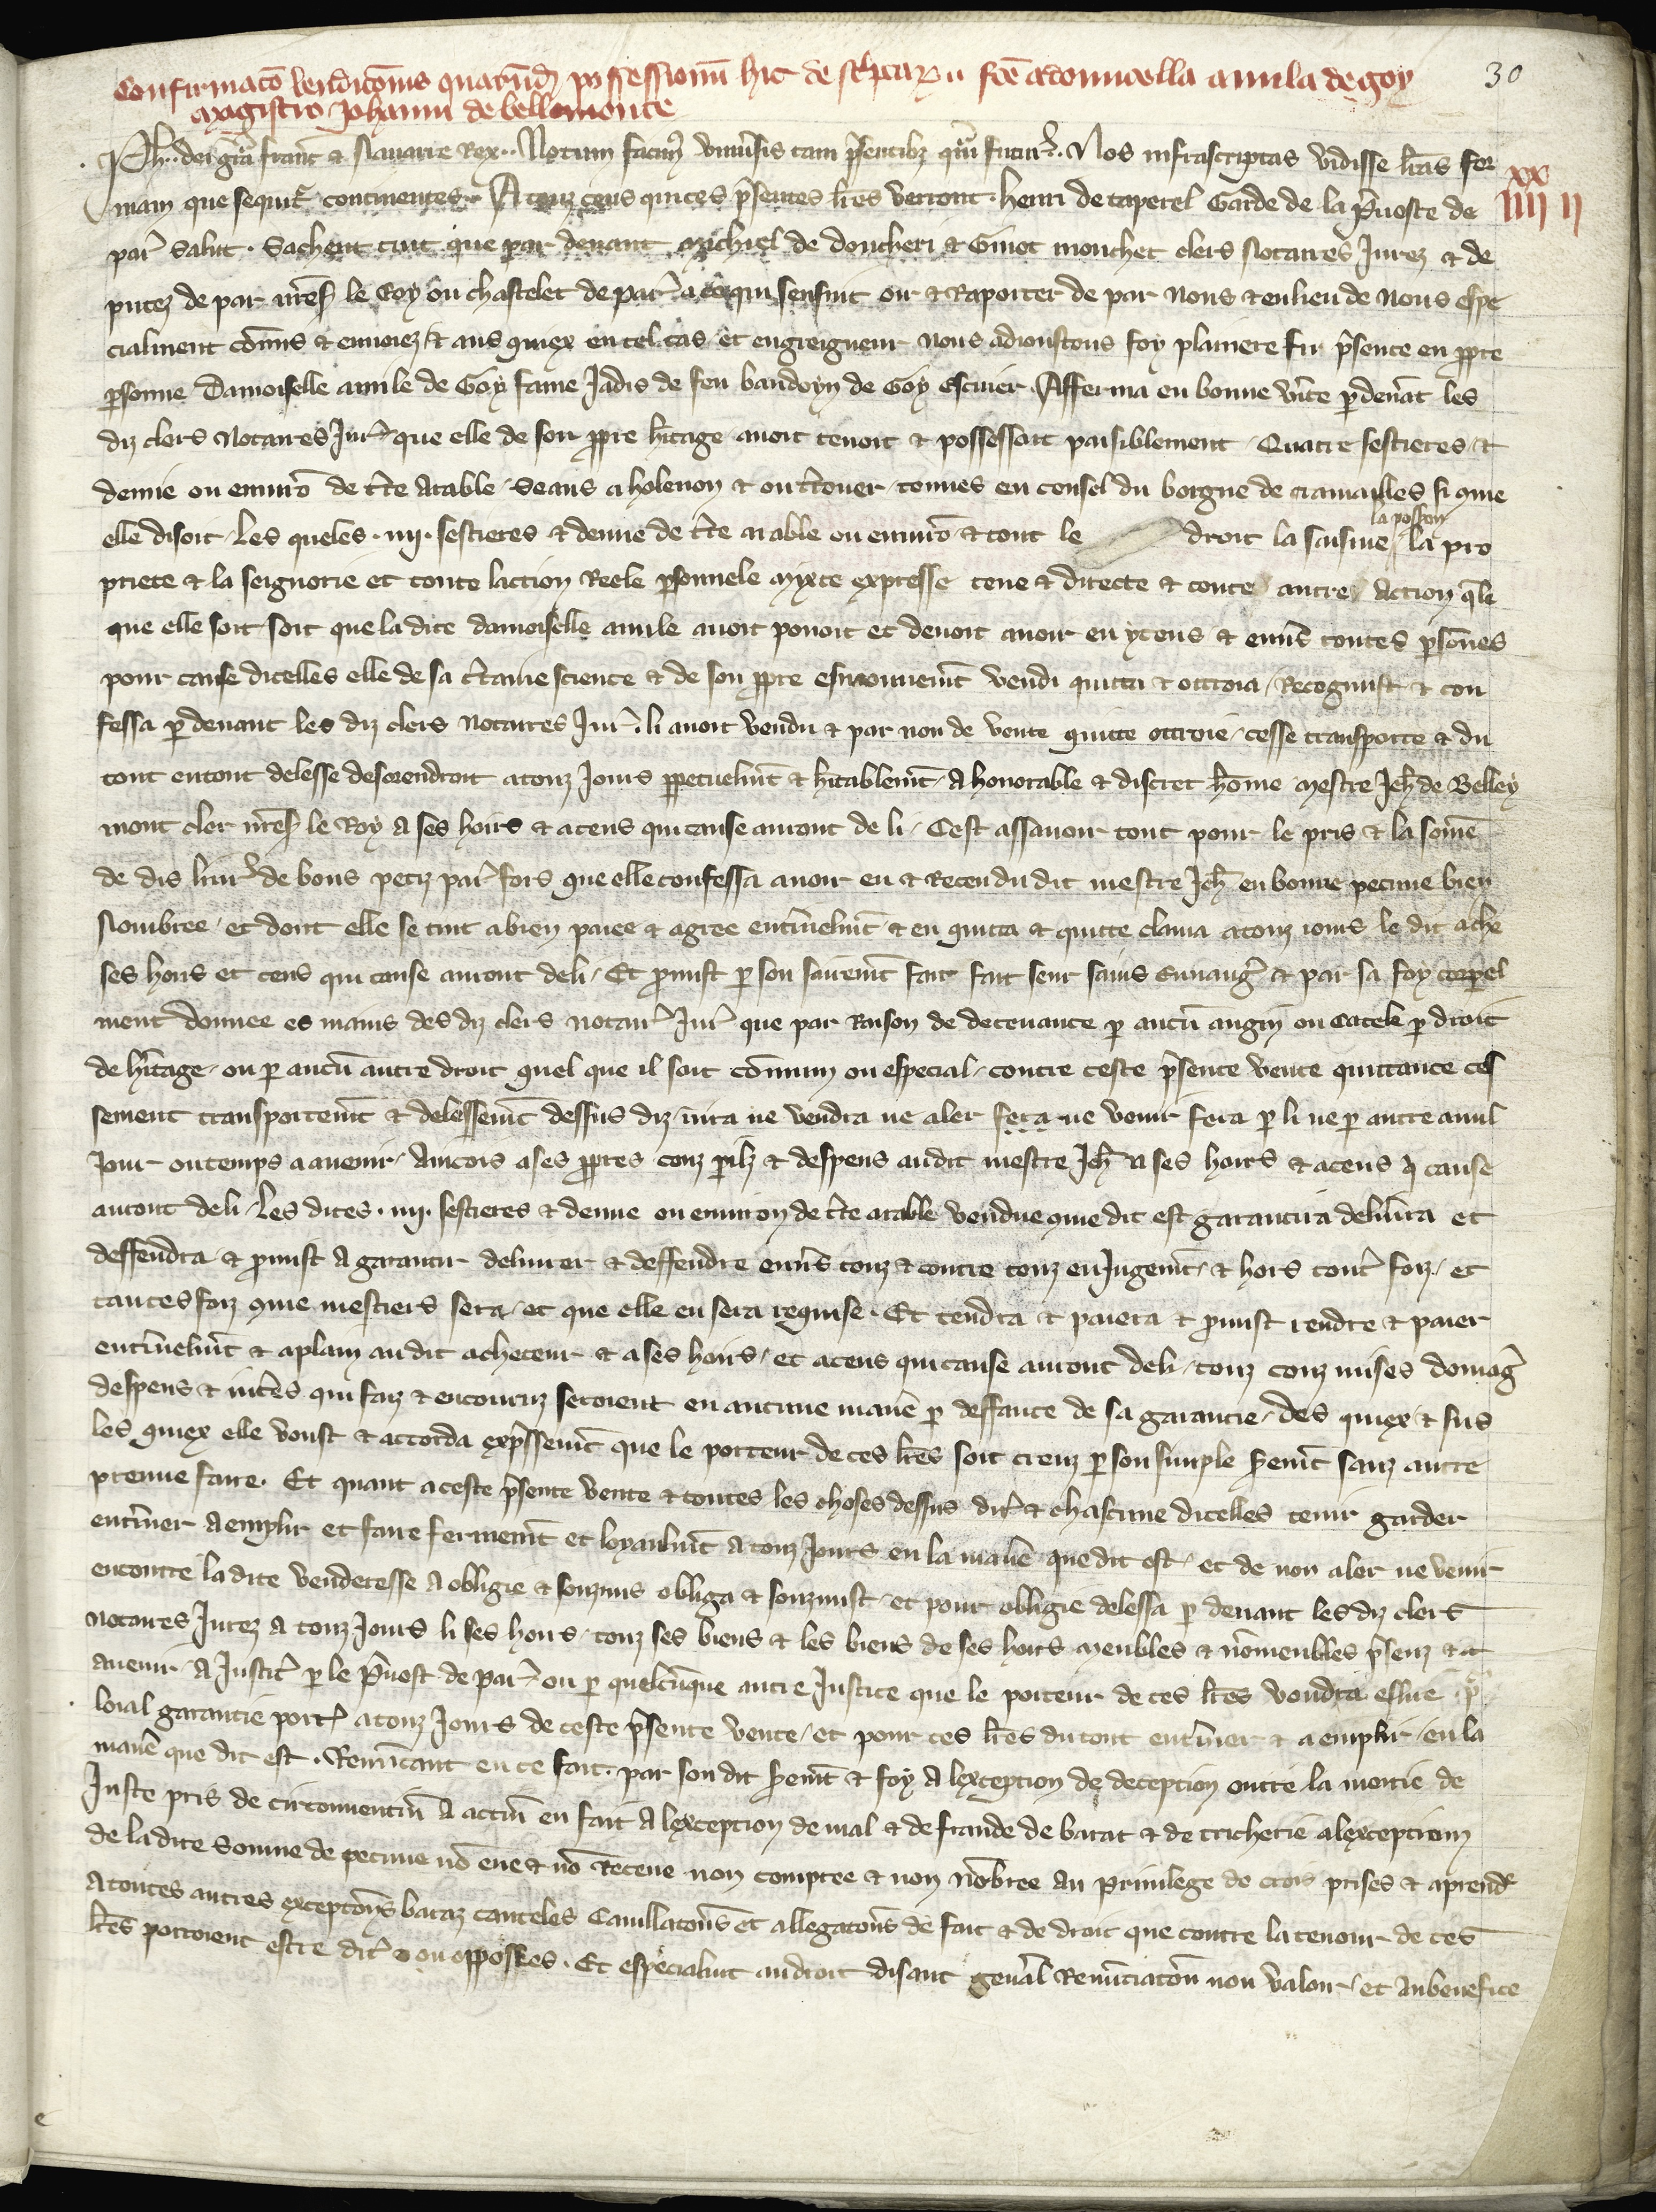 30
Confirmaco vendicois quarund possessionu hic de scptar fce a domicella amila de goy
magistro Johanni de bellomonte
Ph. dei gra franc & Nauarre Rex. Notum facim vniuersis tam psentibz qm futur. Nos infrascriptas vidisse lras for
xx
iiii ii
mam que sequit continentes. A touz ceus qui ces psentes lres verront. henri de taperel Garde de la puoste de
par salut. Sachent tuit que par deuant Michiel de doncheri & Ginot mouchet clers Notaires Jurez & de
putez de par nres le Roy ou chastelet de par a ce qui sensuit oir & Raporter de par nous & en lieu de nous espe
cialment comis & enuoiez & aus quiex en tel cas et en greigneur nous adioustons foy plainiere fu psente en ppre
psonne Damoiselle amile de Goy fame Jadis de feu baudoyn de Goy escuier. Afferma en bonne vite pdeuat les
diz clers Notaires Jur que elle de son ppre hitage auoit tenoit & possessoit paisiblement Quatre sestieres &
demie ou enuiro de tre arable seans a holenon & ou trouer tenues en consel du borgne de cramailles si que
elle disoit Les queles .iiii. sestieres & demie de tre arable ou enuiro & tout le droit la saisine la posson la pro
priete & la seignorie et toute laction Reele psonnele mixte expresse tene & directe & toute autre Action qle
que elle soit soit que la dite damoiselle amile auoit pouoit et deuoit auoir en yceus & enuers toutes psones
pour cause dicelles elle de sa ctaine science & de son ppre esmouuemt vendi quitta & ottroia Recognust & con
fessa pdeuant les diz clers Notaires Jur li auoir vendu & par non de vente quitte ottroie cesse transporte & du
tout entout delesse desorendroit a touz Jours ppetuelmt & hitablemt A honorable & discret home Mestre Jeh de Belley
mont cler nres le Roy A ses hoirs & a ceus qui cause auront de li Cest assauoir tout pour le pris & la some
de dis liur de bons petiz par fors que elle confessa auoir eu & Receu du dit mestre Jeh en bonne pecune bien
Nombree et dont elle se tint a bien paiee & agree enterinelmt & en quitta & quitte clama a touz iours le dit ache
ses hoirs et ceus qui cause auront de li Et pmist p son sairemt fait fait seur sains Euuaug & par sa foy corpel
ment donnee es mains des diz clers notair Jur que par Raison de decenance p aucu angin ou Catele p droit
de hitage ou p aucu autre droit quel que il soit comun ou especial contre ceste psente vente quittance ces
sement transportemt & delessemt dessus diz nira ne vendra ne aler fera ne venir fera p li ne p autre a nul
Jour ou temps a auenir Aincois a ses ppres couz pilz & despens au dit mestre Jeh A ses hoirs & a ceus q cause
auront de li Les dites .iiii. sestieres & demie ou enuiron de tre arable vendue que dit est garantira deliurra et
deffendra & pmist A garantir deliurer & deffendre enuers touz & contre touz en Jugemt & hors tout foiz et
tantes foiz que mestiers sera et que elle en sera requise. Et rendra & paiera & pmist rendre & paier
enterinelmt & a plain au dit acheteur & a ses hoirs et a ceus qui cause auront de li touz couz mises domag
despens & intes qui faiz & encouruz seroient en aucune manie p deffaute de sa garantie des quiex & sus
les quiex elle voust & accorda expssemt que le porteur de ces lres soit creuz p son simple semt sanz autre
preuue faire. Et quant a ceste psente vente & toutes les choses dessus dit & chascune dicelles tenir garder
enteriner A emplir et faire fermemt et loyaulmt A touz Jours en la manie que dit est et de non aler ne venir
encontre la dite venderesse A obligie & souzmis obliga & souzmist et pour obligie delessa p deuant les diz clers
notaires Jurez a touz Jours li ses hoirs touz ses biens & les biens de ses hoirs meubles & nomeubles psenz & a
auenir A Justic p le puost de par ou p quelcunque autre Justice que le porteur de ces lres voudra eslire p
loial garantie port a touz Jours de ceste psente vente et pour ces lres du tout enteriner & a emplir en la
manie que dit est. Renuncant en ce fait par son dit semt & foy A lexception de deception outre la moitie de
Juste pris de circonuentiu A actiu en fait A lexception de mal & de fraude de barat & de tricherie a lexception
de la dite somme de pecune no eue & no Receue non comptee & non nobree au priuilege de crois prises & a prend
A toutes autres exceptons baraz cauteles Cauillatons et allegatons de fait & de droit que contre la teneur de ces
lres porroient estre dit ou opposees. Et especialmt au droit disant genal Renunciaton non valoir et au benefice